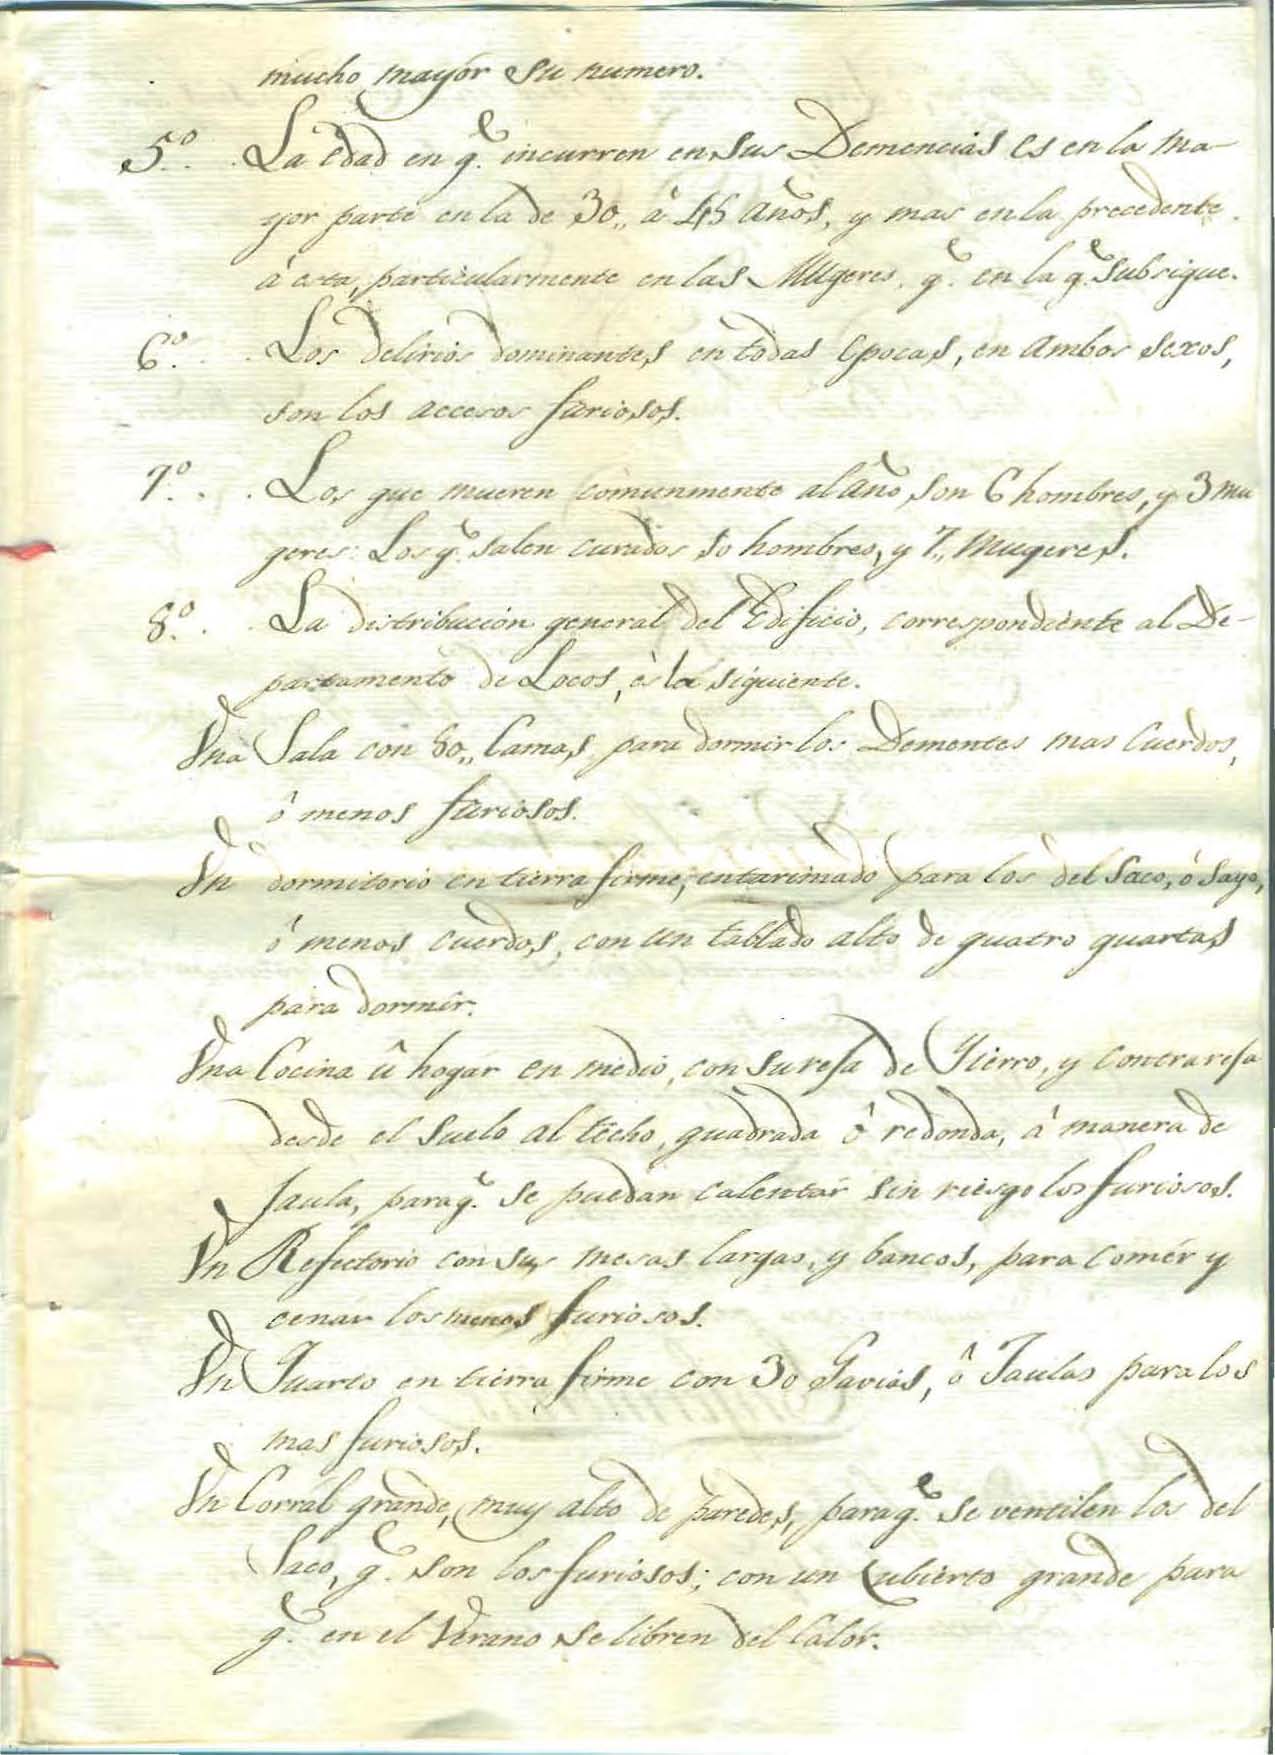 mucho mayór su numero.
5.º La edad en q.e incurren en sus Demencias es en la ma-
yor parte en la de 30,, â 45 años, y mas en la precedente
â esta, particularmente en las Mugeres, q.e en la q.e subsigue.
6.º Los delirios dominantes en todas epocas, en ambos sexos,
son los accesos furiosos.
7.º Los que mueren comunmente al año, son 6 hombres, y 3 mu
geres: Los q.e salen curados 10 hombres, y 7,, Mugeres.
8.º La distribución general del Edificio, correspondiente al De-
partamento de Locos, es la siguiente.
Una Sala con 80,, Camas, para dormir los Dementes mas Cuerdos,
ô menos furiosos.
Un dormitorio en tierra firme, entarimado para los del Saco, ó Sayo,
ô menos cuerdos, con un tablado alto de quatro quartas
para dormir.
Una Cocina û hogár en medio, con su rexa de Yierro, y contrarexa
desde el suelo al têcho, quadrada ô redonda, â manera de
Jaula, para q.e se puedan calentár sin riesgo los furiosos.
Un Refectorio con sus mesas largas, y bancos, para comér y
cenar los menos furiosos.
Un Quarto en tierra firme con 30 Gavias, ô Jaulas para los
mas furiosos.
Un Corrál grande, muy alto de paredes, para q.e se ventilen los del
Saco, q.e son los furiosos; con un Cubierto grande para
q.e en el Verano se libren del Calór.